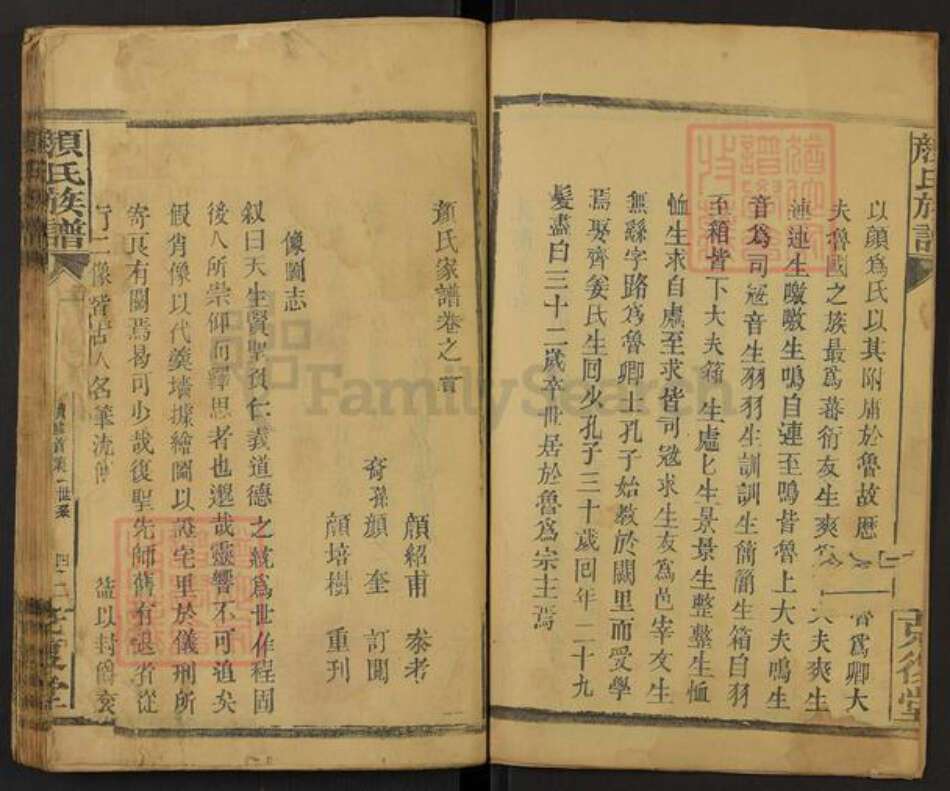 以顔爲氏以其附庸於魯故歷
爲卿大
夫魯國之族最爲蕃衍友生爽
大夫爽生
連連生噭噭生鳴自連至鳴皆魯上大夫鳴生
音爲司宼音生羽羽生訓訓生簡簡生箱自羽
至箱皆下大夫箱生虚匕生景景生整整生恤
恤生求自虚至求皆司宼求生友爲邑宰友生
無繇字路爲魯卿士孔子始教於闕里而受學
焉娶齊姜氏生回少孔子三十歲回年二十九
髮盡白三十二歲卒世居於魯爲宗主焉
顔氏族譜
克復堂
顔氏家譜卷之首
顔紹甫 叅考
裔孫顔 奎 訂閲
顔培樹 重刊
像圖志
叙曰天生賢聖負仁義道德之統爲世作程固
後人所崇仰而繹思者也邈哉靈響不可追矣
假肖像以代羮墻據繪圖以證宅里於儀刑所
寄良有關焉曷可少哉復聖先師舊有退省從
行二像皆古人名筆流傳
益以封爵兗
顔氏族譜
克復堂
FamilySearch